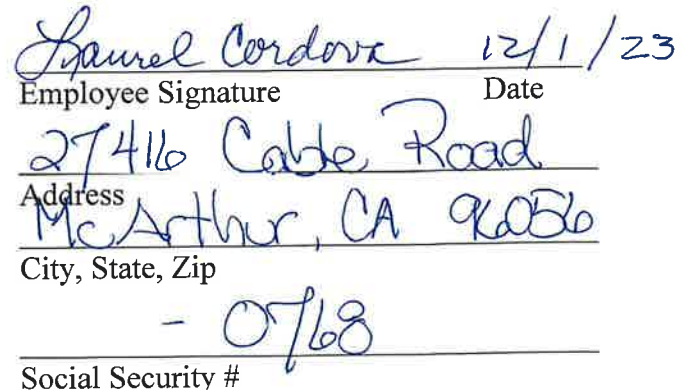 Laurel Cordova 12/1/23
Employee Signature Date
27416 Cable Road
Address
McArthur, CA 96056
City, State, Zip
- 0768
Social Security #